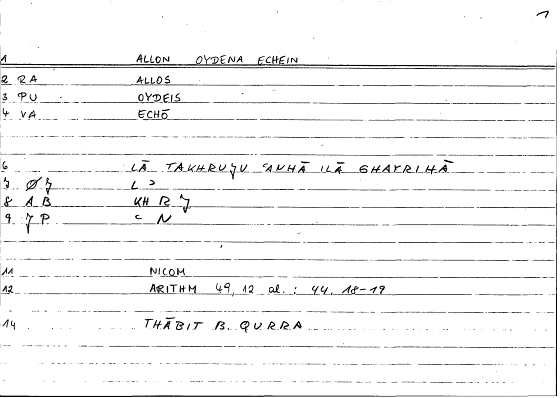 1
1 ALLON OYDENA ECHEIN
2 RA ALLOS
3 PU OYDEIS
4 VA ECHŌ
6 LĀ TAKHRUJU ʿANHĀ ILĀ GHAYRIHĀ
7 ØJ L ʾ
8 AB KH R J
9 JP ʿ N
11 NICOM
12 ARITHM 49, 12 al. : 44. 18-19
14 THĀBIT B. QURRA